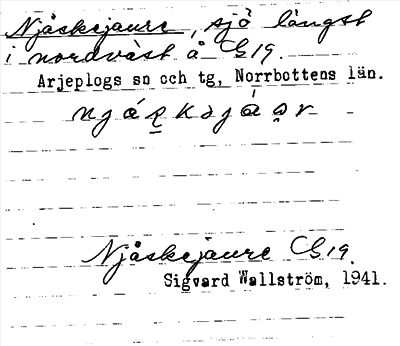 Njåskejaure, sjö längst
i nordväst å G19.
Arjeplogs sn och tg, Norrbottens län.
Njåskejaure G19.
Sigvard Wallström, 1941.